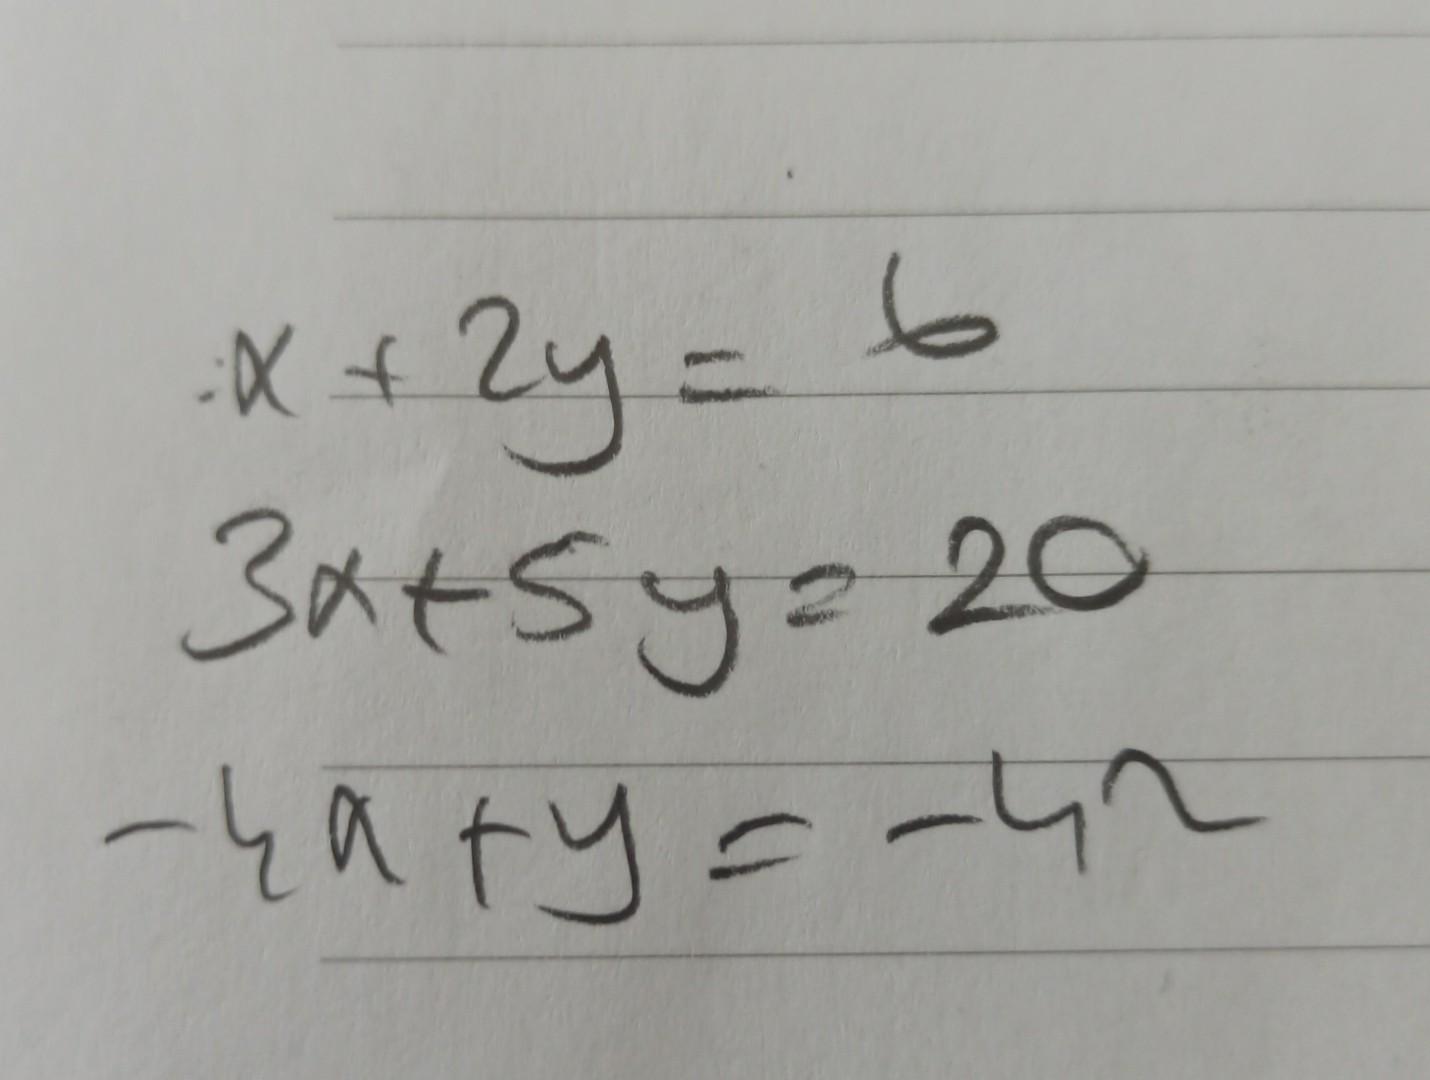 x + 2y = 6
3x + 5y = 20
-4x + y = -42